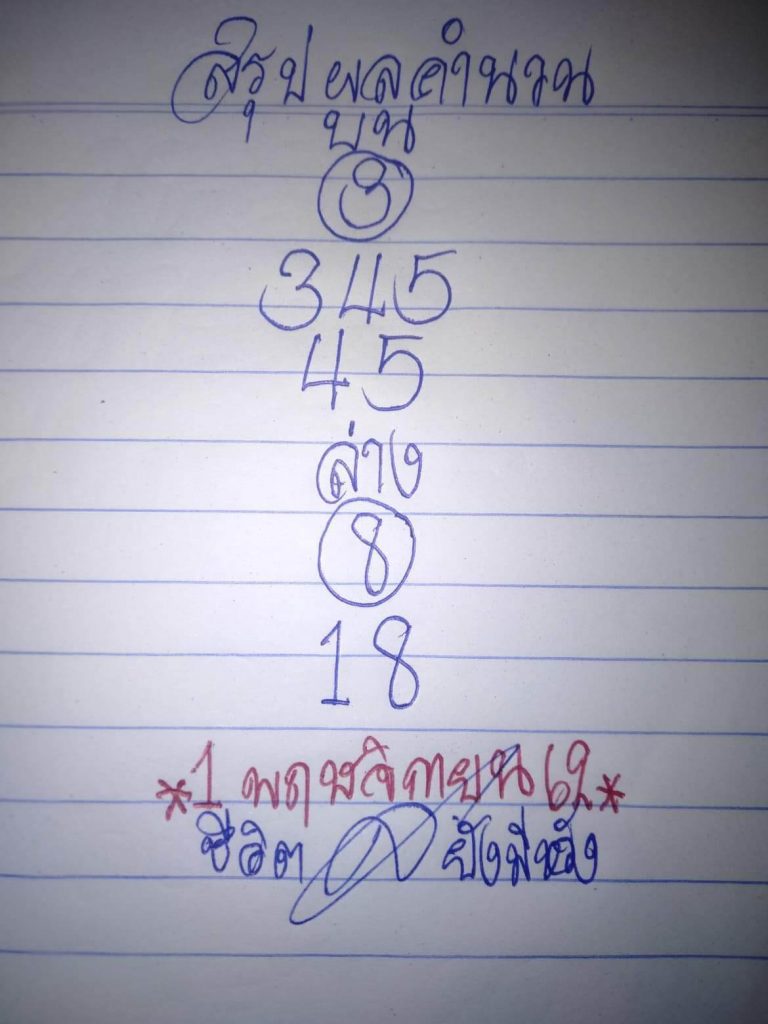 สรุปผลคำนวน
บน
3
345
45
ล่าง
8
18
*1 พฤศจิกายน 62*
ชีวิต ยังมีหวัง